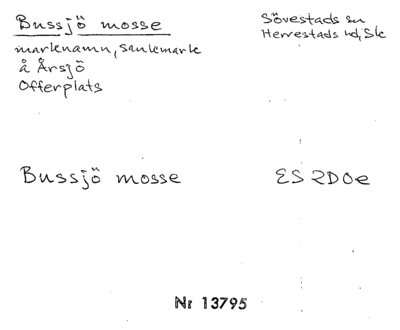 Bussjö mosse
Sövestads sn
Herrestads hd, Sk
marknamn, sankmark
å Årsjö
Offerplats
Bussjö mosse
ES 2D0e
Nr 13795